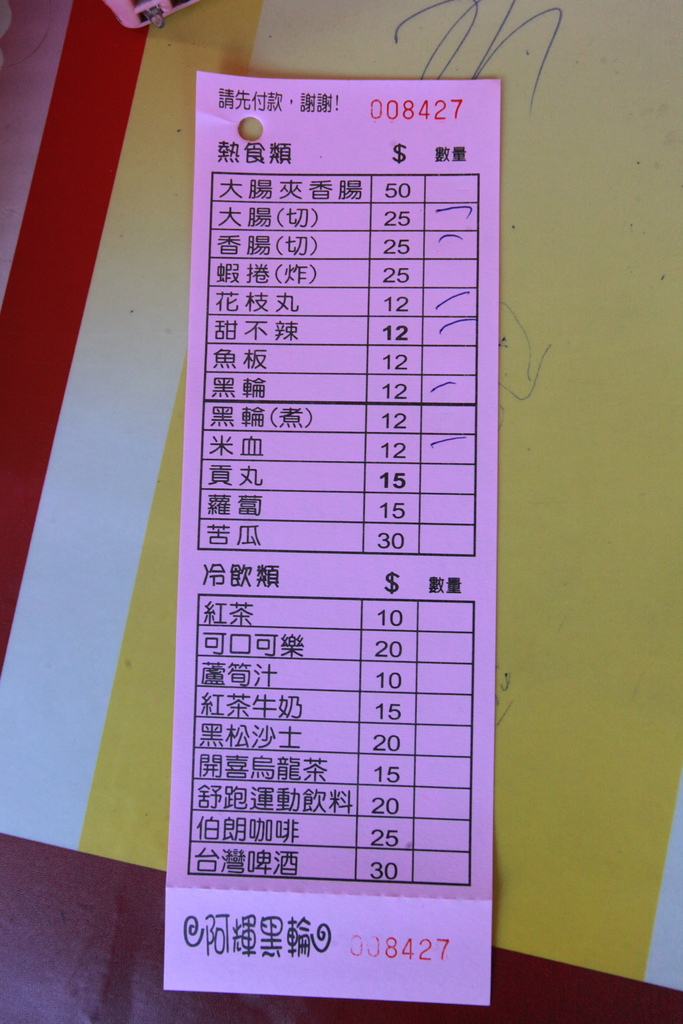 請先付款，謝謝! 008427
熱食類 $ 數量
大腸夾香腸 50
大腸(切) 25 一
香腸(切) 25 一
蝦捲(炸) 25
花枝丸 12 一
甜不辣 12 一
魚板 12
黑輪 12 一
黑輪(煮) 12
米血 12 一
貢丸 15
蘿蔔 15
苦瓜 30
冷飲類 $ 數量
紅茶 10
可口可樂 20
蘆筍汁 10
紅茶牛奶 15
黑松沙士 20
開喜烏龍茶 15
舒跑運動飲料 20
伯朗咖啡 25
台灣啤酒 30
阿輝黑輪 008427